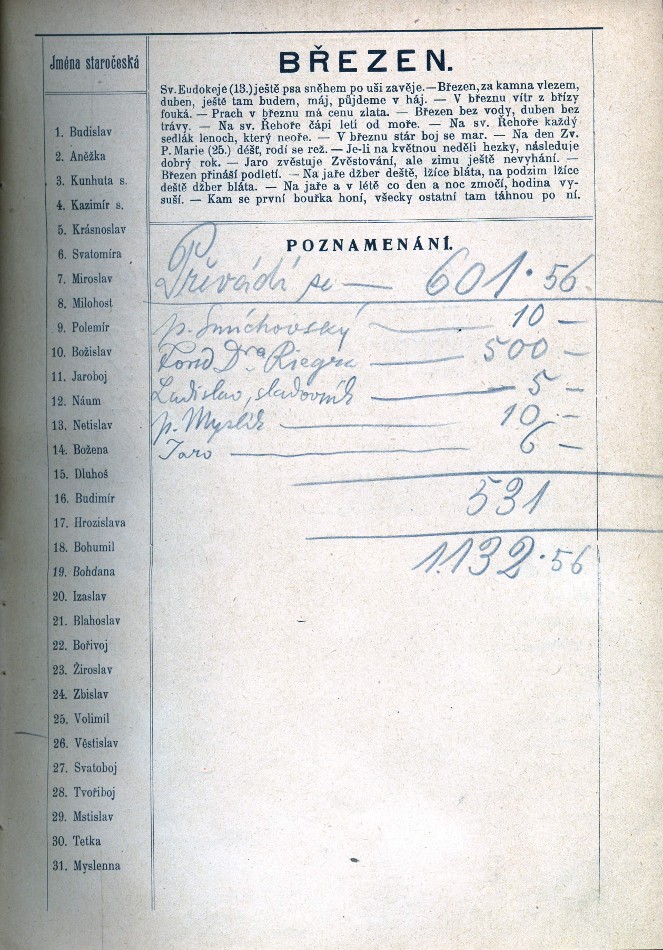 Jména staročeská
1. Budislav
2. Aněžka
3. Kunhuta s.
4. Kazimír s.
5. Krásnoslav
6. Svatomíra
7. Miroslav
8. Milohost
9. Polemír
10. Božislav
11. Jaroboj
12. Náum
13. Netislav
14. Božena
15. Dluhoš
16. Budimír
17. Hrozislava
18. Bohumil
19. Bohdana
20. Izaslav
21. Blahoslav
22. Bořivoj
23. Žiroslav
24. Zbislav
25. Volimil
26. Věstislav
27. Svatoboj
28. Tvořiboj
29. Mstislav
30. Tetka
31. Myslenna
BŘEZEN.
Sv. Eudokeje (13.) ještě psa sněhem po uši zavěje. — Březen, za kamna vlezem,
duben, ještě tam budem, máj, půjdeme v háj. — V březnu vítr z břízy
fouká. — Prach v březnu má cenu zlata. — Březen bez vody, duben bez
trávy. — Na sv. Řehoře čápi letí od moře. — Na sv. Řehoře každý
sedlák lenoch, který neoře. — V březnu stár boj se mar. — Na den Zv.
P. Marie (25.) déšť, rodí se rež. — Je-li na květnou neděli hezky, následuje
dobrý rok. — Jaro zvěstuje Zvěstování, ale zimu ještě nevyhání. —
Březen přináší podletí. — Na jaře džber deště, lžíce bláta, na podzim lžíce
deště džber bláta. — Na jaře a v létě co den a noc zmočí, hodina vy-
suší. — Kam se první bouřka honí, všecky ostatní tam táhnou po ní.
POZNAMENÁNÍ.
Převádí se — 601·56
p. Smíchovský — 10 —
Fond Dra Riegra — 500 —
Ladislav, sladovník — 5 —
p. Myslík — 10 —
Jaro — 6 —
531
1.132·56